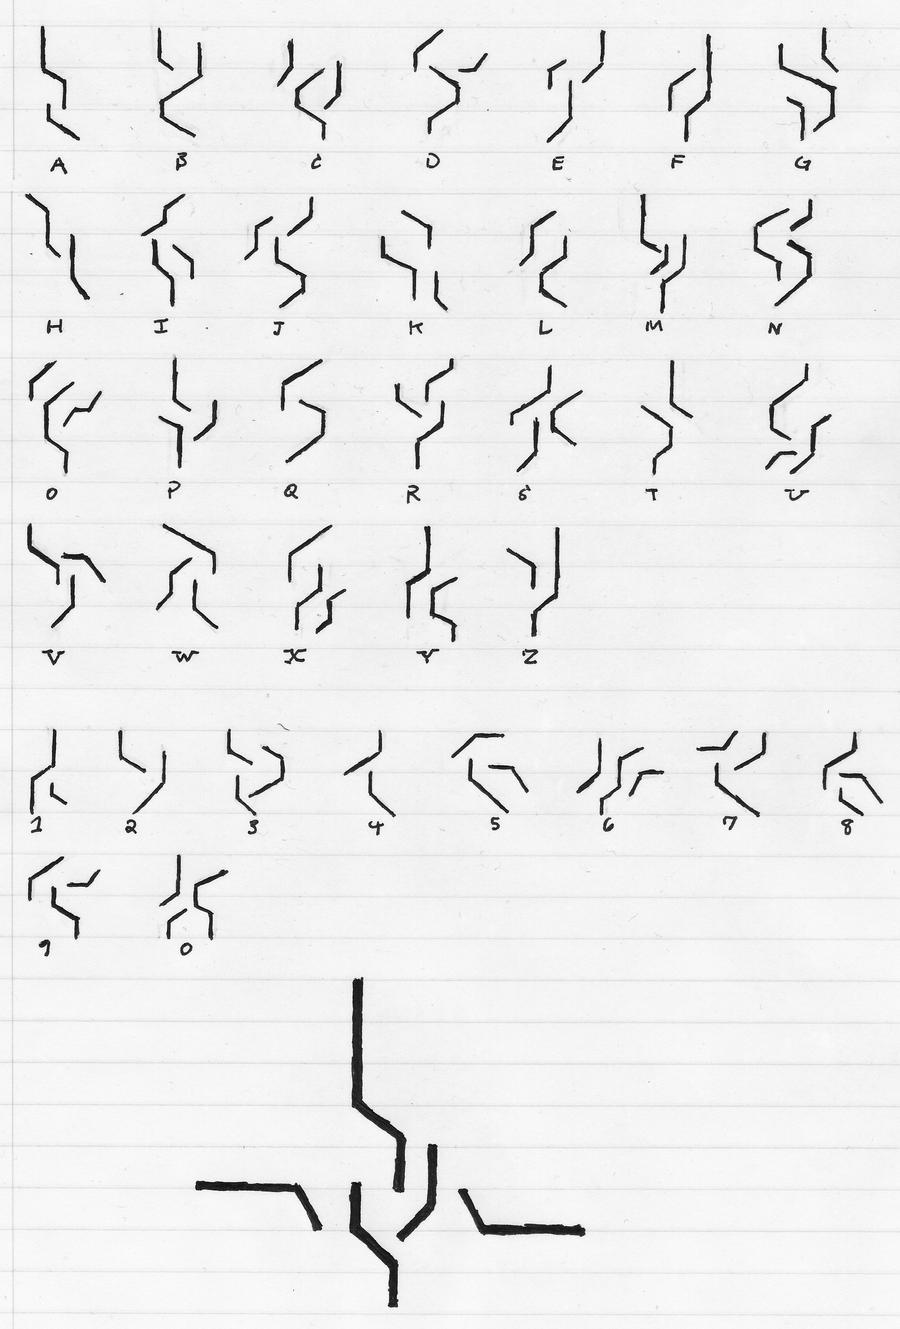 A B C D E F G
H I J K L M N
O P Q R S T U
V W X Y Z
1 2 3 4 5 6 7 8
9 0